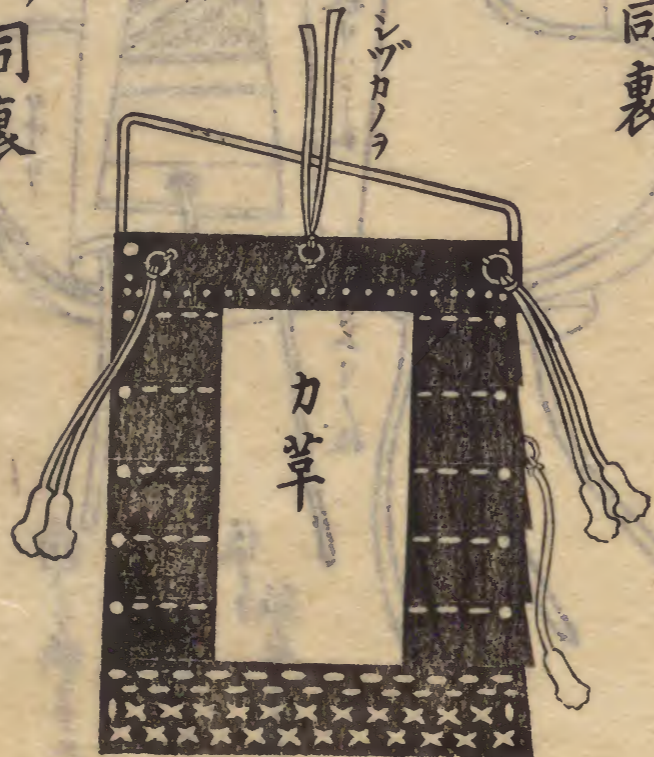 同裏
シヅカノヲ
同裏
力革